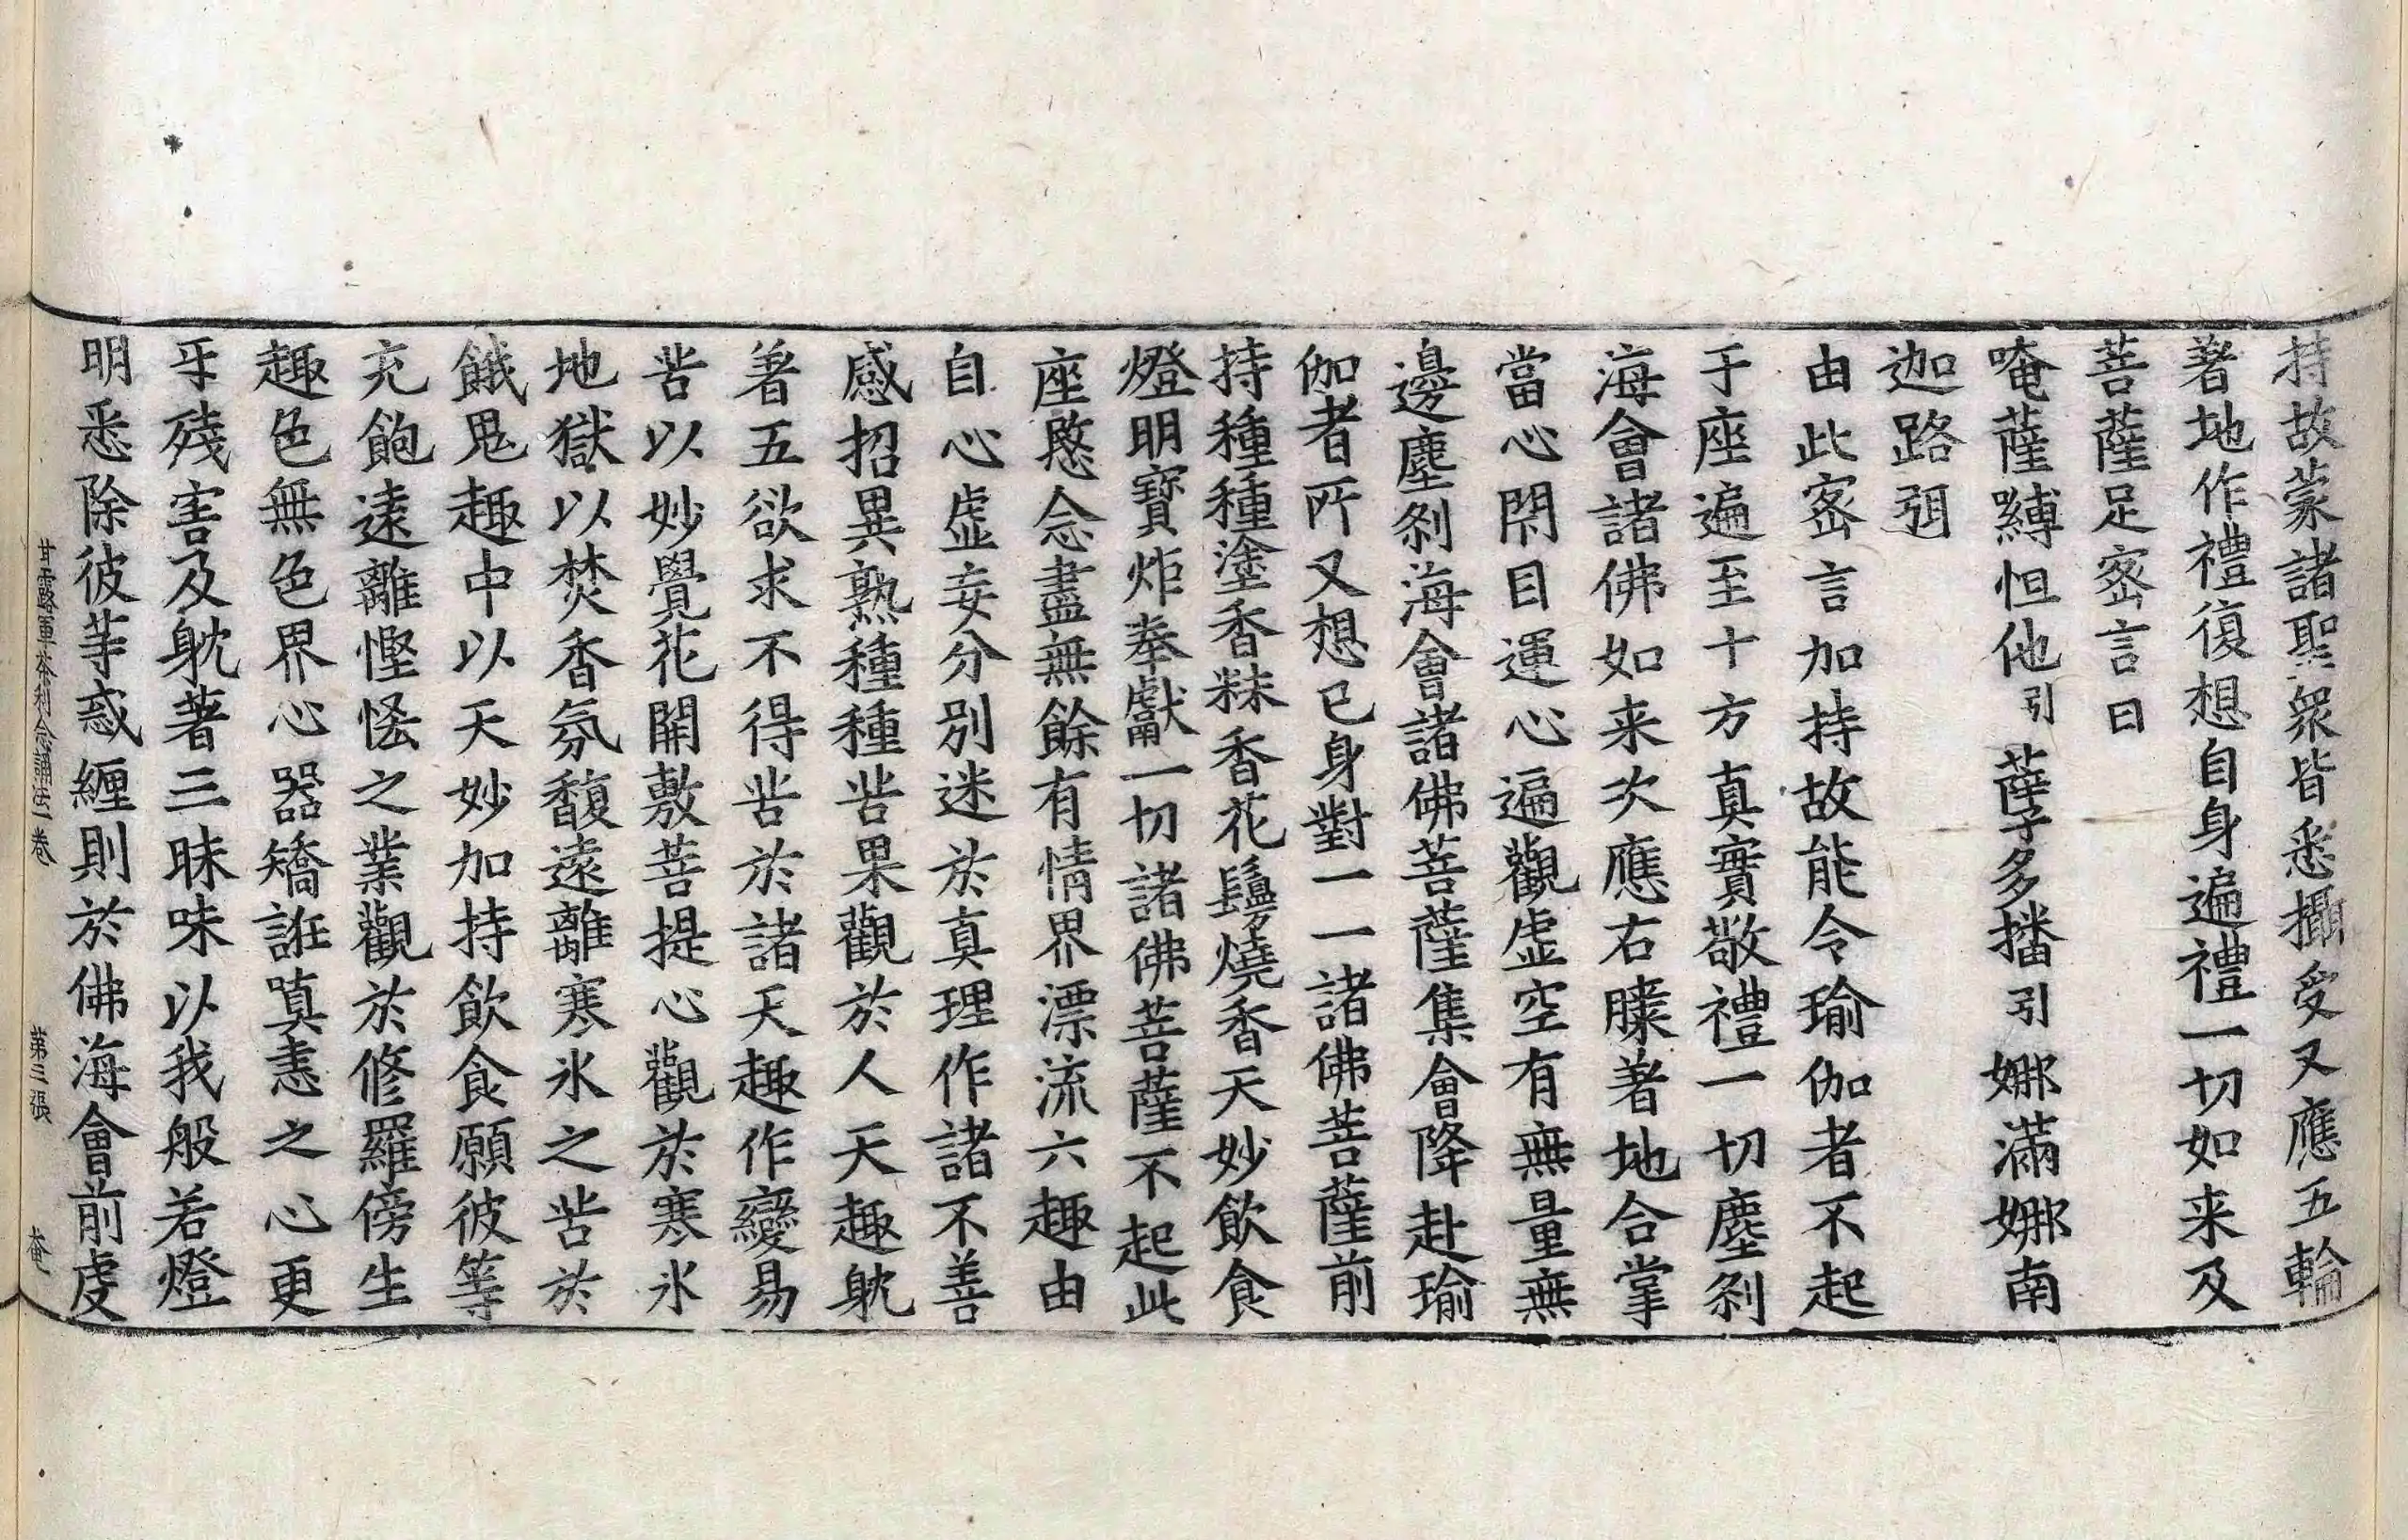 持故蒙諸聖衆皆悉攝受又應五輪
著地作禮復想自身遍禮一切如来及
菩薩足密言曰
唵薩嚩怛他引薩孚多播引娜滿娜南
迦路弭
由此密言加持故能令瑜伽者不起
于座遍至十方真實敬禮一切塵刹
海會諸佛如来次應右膝著地合掌
當心閇目運心遍觀虚空有無量無
邊塵刹海會諸佛菩薩集會降赴瑜
伽者所又想已身對一一諸佛菩薩前
持種種塗香粖香花鬘燒香天妙飲食
燈明寶炬奉獻一切諸佛菩薩不起此
座愍念盡無餘有情界漂流六趣由
自心虚妄分別迷於真理作諸不善
感招異熟種種苦果觀於人天趣躭
著五欲求不得苦於諸天趣作變易
苦以妙覺花開敷菩提心觀於寒氷
地獄以焚香氛馥遠離寒氷之苦於
餓鬼趣中以天妙加持飲食願彼等
充飽遠離慳悋之業觀於修羅傍生
趣色無色界心器矯誑嗔恚之心更
互殘害及躭著三昧味以我般若燈
明悉除彼等惑纏則於佛海會前虔
甘露軍荼利念誦法一卷 第三張 奄